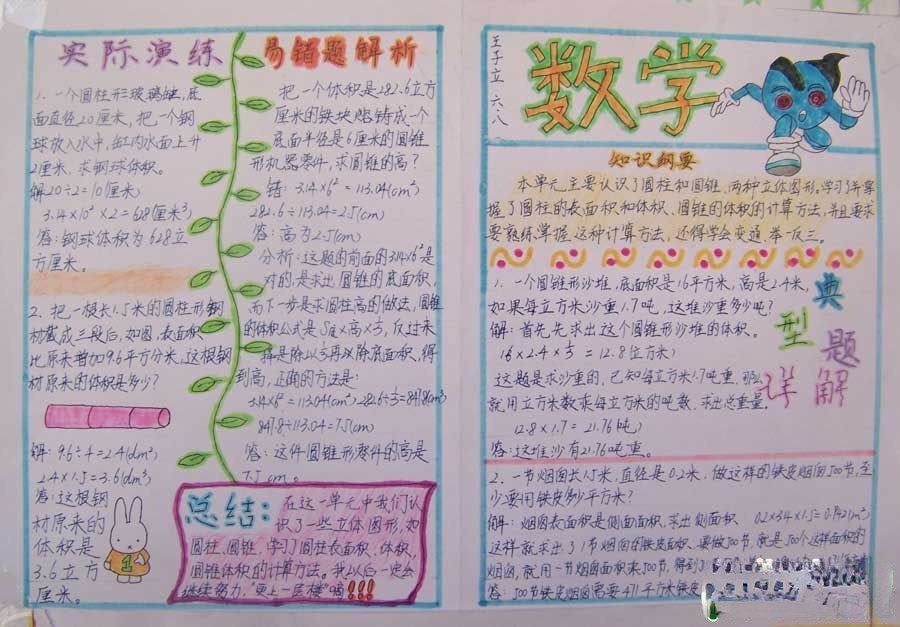 实际演练
1、一个圆柱形玻璃缸,底
面直径20厘米,把一个钢
球放入水中,缸内水面上升
2厘米,求钢球体积。
解20÷2=10厘米)
3.14×10²×2=628厘米³)
答:钢球体积为628立
方厘米。
2、把一根长1.5米的圆柱形钢
材截成三段后,如图,表面积
比原来增加9.6平方分米,这根钢
材原来的体积是多少?
解:9.6÷4=2.4(dm²)
2.4×1.5=3.6(dm³)
答:这根钢
材原来的
体积是
3.6立方
厘米。
易错题解析
把一个体积是282.6立方
厘米的铁块熔铸成一个
底面半径是6厘米的圆锥
形机器零件,求圆锥的高?
错:3.14×6²=113.04(cm²)
282.6÷113.04=2.5(cm)
答:高为2.5(cm)
分析:这题的前面的3.14×6²是
对的,是求出圆锥的底面积,
而下一步是求圆柱高的做法,圆锥
的体积公式是:S底×高×⅓,反过来
算是除以⅓再以除底面积,得
到高,正确的方法是:
3.14×6²=113.04(cm²) 282.6÷⅓=847.8(cm³)
847.8÷113.04=7.5(cm)
答:这件圆锥形零件的高是
7.5cm。
总结:
在这一单元中我们认
识了一些立体图形,如
圆柱,圆锥,学习了圆柱表面积、体积,
圆锥体积的计算方法。我以后一定会
继续努力,"更上一层楼"嘀!!!
王子立 六.八
数学
知识纲要
本单元主要认识了圆柱和圆锥,两种立体图形,学习了并掌
握了圆柱的表面积和体积、圆锥的体积的计算方法,并且要求
要熟练掌握这种计算方法,还得学会变通,举一反三。
典型题详解
1、一个圆锥形沙堆,底面积是16平方米,高是2.4米,
如果每立方米沙重1.7吨,这堆沙重多少吨?
解:首先,先求出这个圆锥形沙堆的体积。
16×2.4×⅓=12.8(立方米)
这题是求沙重的,已知每立方米1.7吨重,那么
就用立方米数乘每立方米的吨数,求出总重量。
12.8×1.7=21.76(吨)
答:这堆沙有21.76吨重。
2、一节烟囱长1.5米,直径是0.2米,做这样的铁皮烟囱500节,至
少要用铁皮多少平方米?
解:烟囱表面积是侧面面积,求出侧面积 0.2×3.14×1.5=0.942(m²)
这样就求出了1节烟囱的铁皮面积,要做500节,就是500个这样面积的
烟囱,就用一节烟囱面积乘500,得到
答:500节铁皮烟囱需要471平方米铁皮